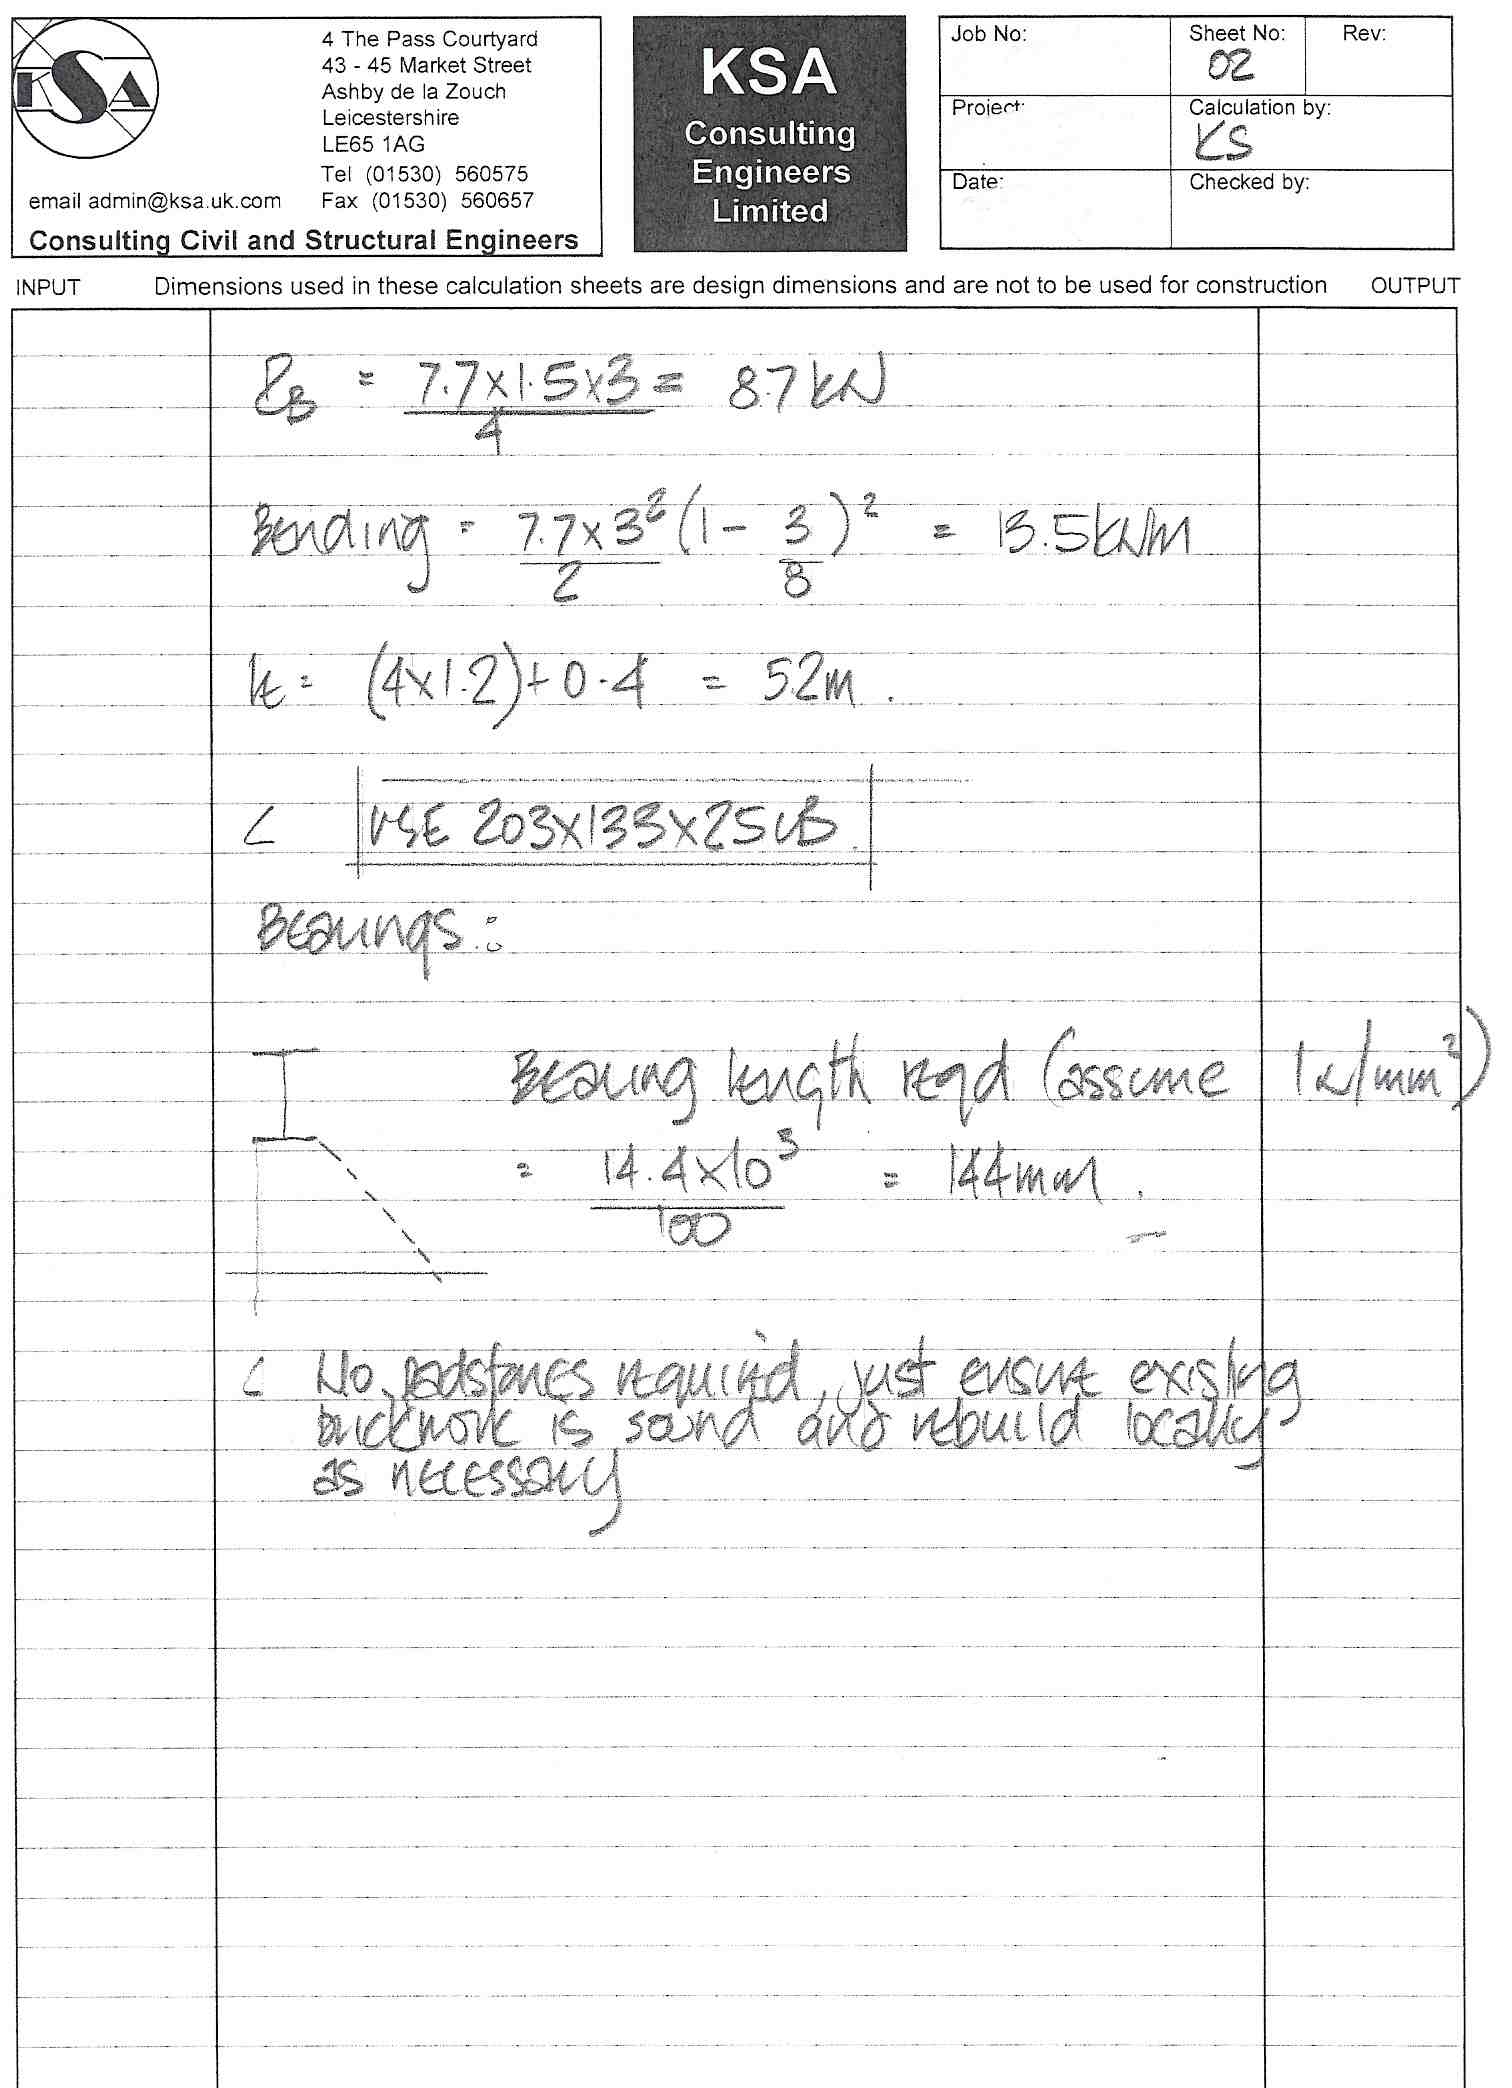 KSA
4 The Pass Courtyard
43 - 45 Market Street
Ashby de la Zouch
Leicestershire
LE65 1AG
Tel (01530) 560575
email admin@ksa.uk.com Fax (01530) 560657
Consulting Civil and Structural Engineers
KSA
Consulting
Engineers
Limited
Job No:
Sheet No:
02
Rev:
Project:
Calculation by:
KS
Date:
Checked by:
INPUT Dimensions used in these calculation sheets are design dimensions and are not to be used for construction OUTPUT
= 7.7x1.5x3 = 8.7kN
4
Bending = 7.7x3² (1 - 3)² = 13.5kNm
2 8
le = (4x1.2)+0.4 = 5.2m.
USE 203x133x25UB
Bearings:
Bearing length reqd (assume 1N/mm²)
= 14.4x10³ = 144mm.
100
No padstones required, just ensure existing
brickwork is sound and rebuild locally
as necessary